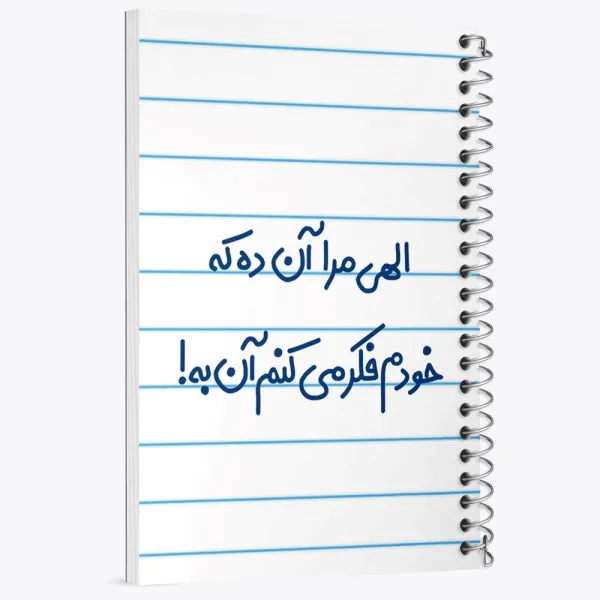 الهی مرا آن ده که
خودم فکر می کنم آن به!